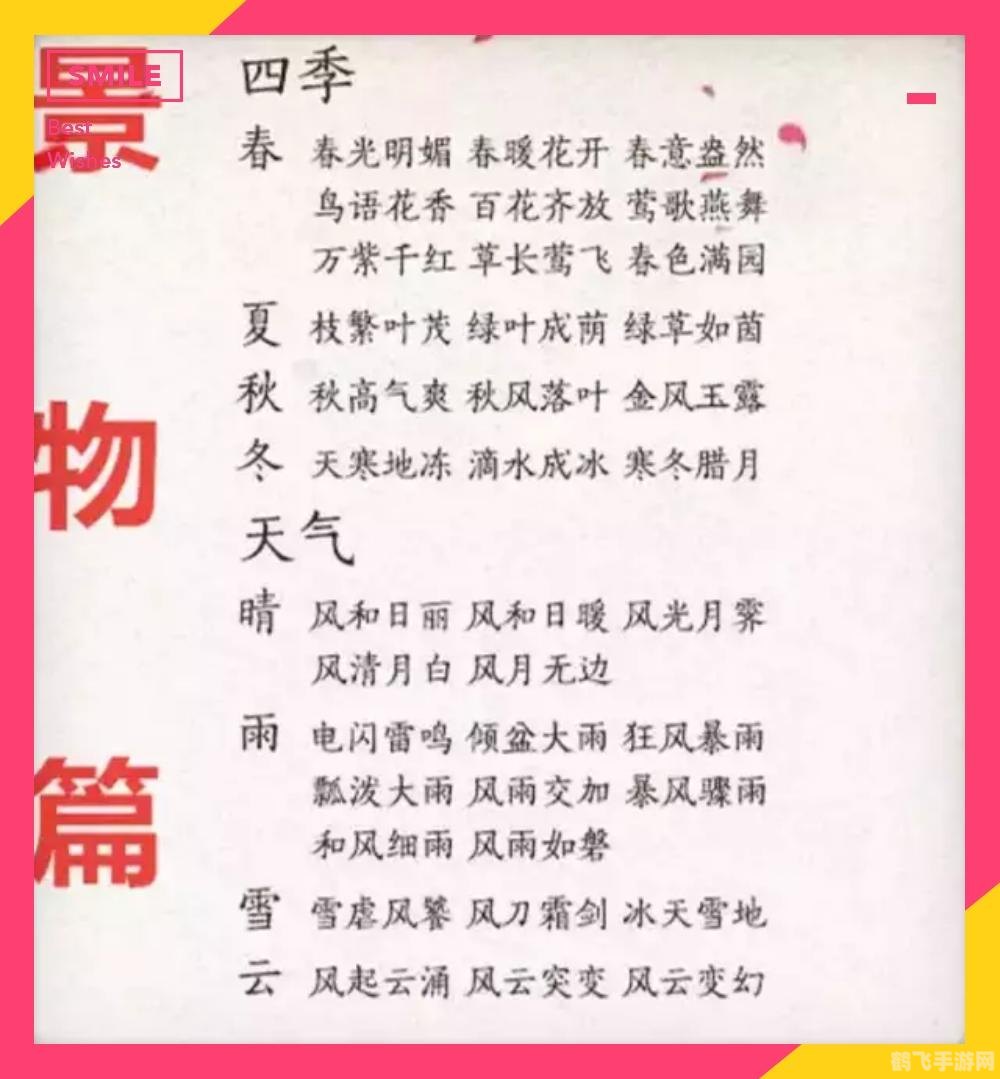 SMILE
Best
Wishes
景物篇
四季
春 春光明媚 春暖花开 春意盎然
鸟语花香 百花齐放 莺歌燕舞
万紫千红 草长莺飞 春色满园
夏 枝繁叶茂 绿叶成荫 绿草如茵
秋 秋高气爽 秋风落叶 金风玉露
冬 天寒地冻 滴水成冰 寒冬腊月
天气
晴 风和日丽 风和日暖 风光月霁
风清月白 风月无边
雨 电闪雷鸣 倾盆大雨 狂风暴雨
瓢泼大雨 风雨交加 暴风骤雨
和风细雨 风雨如磐
雪 雪虐风饕 风刀霜剑 冰天雪地
云 风起云涌 风云突变 风云变幻
鹤飞手游网